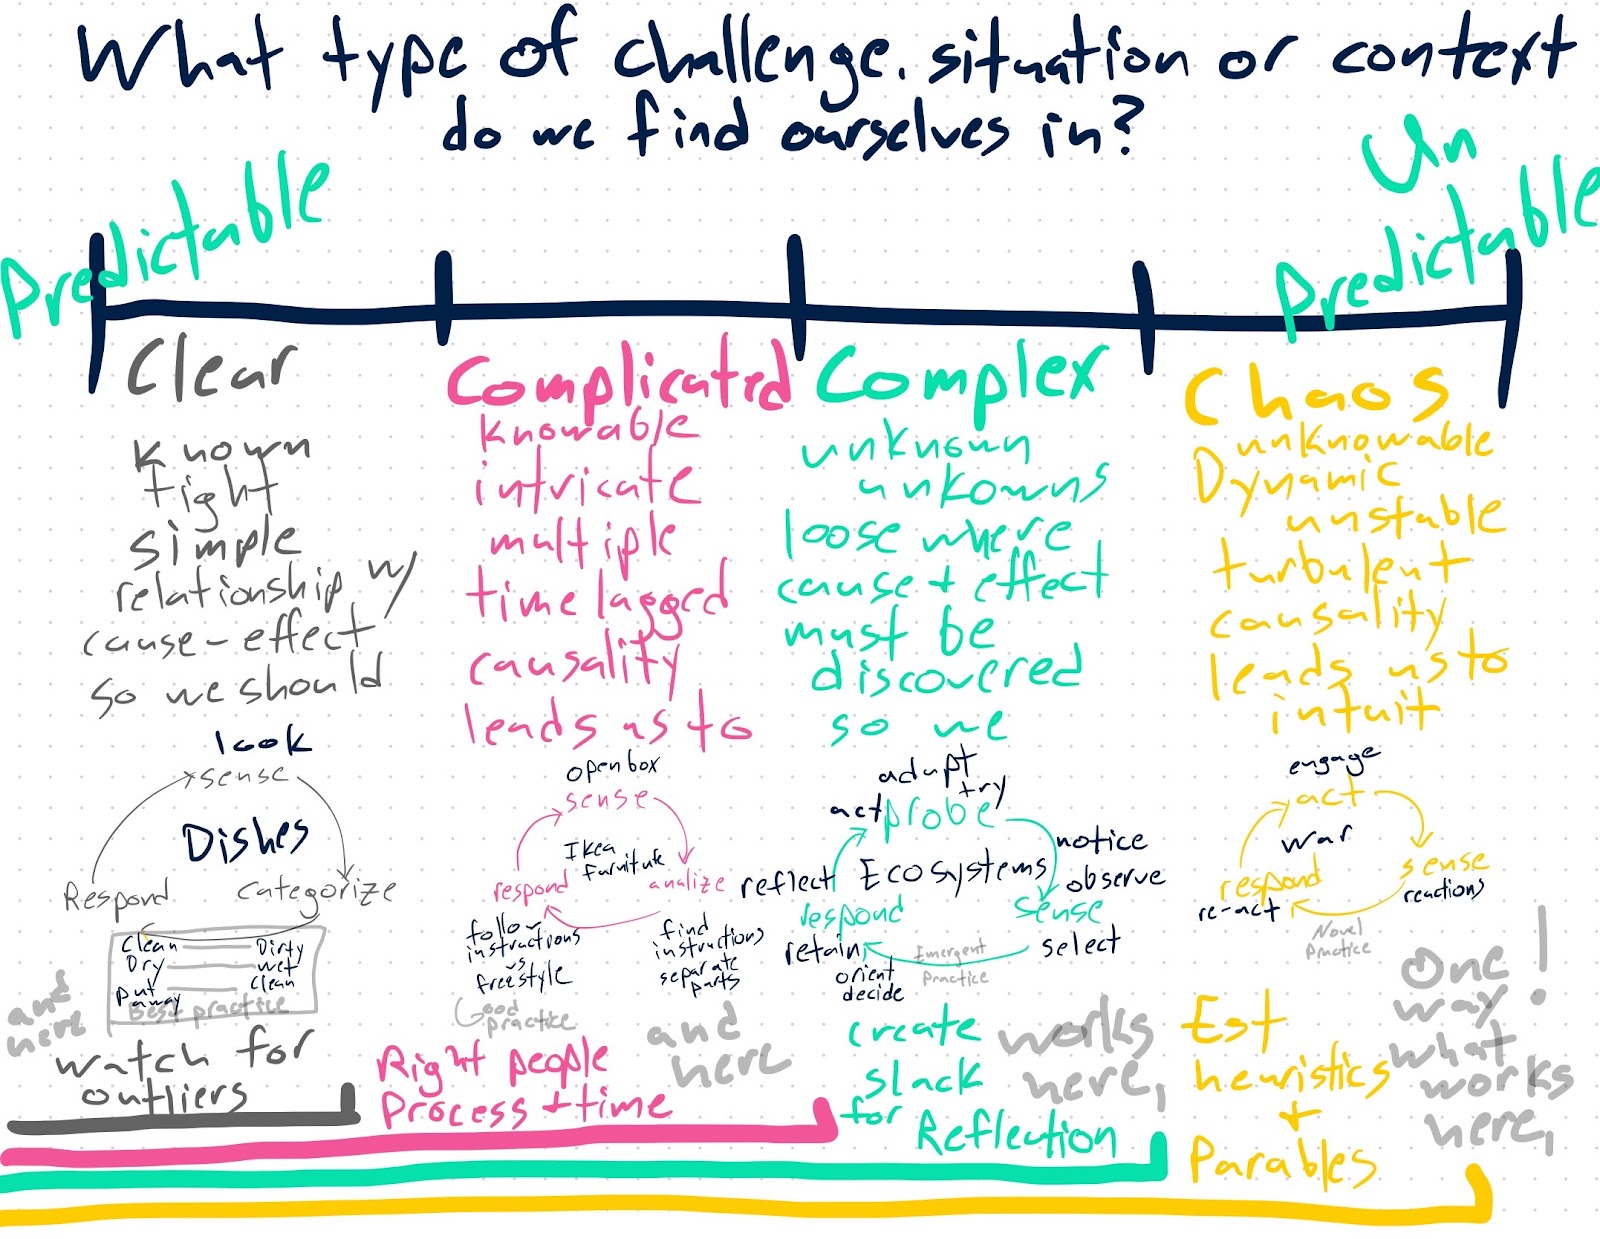 What type of challenge. situation or context
do we find ourselves in?
Predictable
Un
Predictable
Clear
known
tight
simple
relationship w/
cause-effect
so we should
look
sense
Dishes
Respond
categorize
clean
Dirty
Dry
wet
put
away
clean
Best practice
and
here
watch for
outliers
Complicated
knowable
intricate
multiple
time lagged
causality
leads us to
open box
sense
Ikea
furniture
respond
analize
follow
instructions
vs
freestyle
find
instructions
separate
parts
Good
practice
and
here
Right people
Process + time
Complex
unknown
unkowns
loose where
cause + effect
must be
discovered
so we
adapt
try
act
probe
notice
Ecosystems
reflect
observe
respond
sense
retain
select
Emergent
Practice
orient
decide
create
slack
for
Reflection
works
here,
Chaos
unknowable
Dynamic
unstable
turbulent
causality
leads us to
intuit
engage
act
war
respond
sense
re-act
reactions
Novel
Practice
Est
heuristics
+
Parables
One
way!
what
works
here,